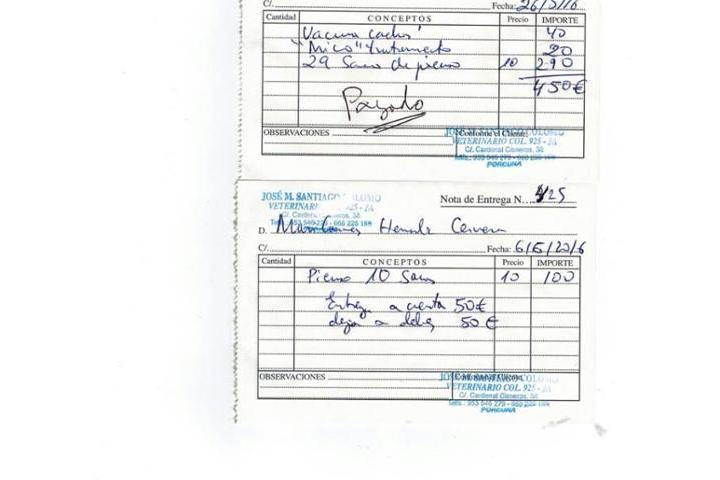 C/. Fecha: 26/5/16
Cantidad CONCEPTOS Precio IMPORTE
Vacuna 40
"Mico" tratamiento 20
29 Sacos de pienso 10 290
450€
Pagado
OBSERVACIONES Conforme el Cliente:
JOSÉ M. SANTIAGO COLOMO
VETERINARIO COL. 925 - JA
C/. Cardenal Cisneros, 38
PORCUNA
JOSÉ M. SANTIAGO COLOMO
VETERINARIO COL. 925 - JA
C/. Cardenal Cisneros, 38
Nota de Entrega N. 425
D.
C/. Fecha: 6/5/2016
Cantidad CONCEPTOS Precio IMPORTE
Pienso 10 Sacos 10 100
Entrega a cuenta 50€
deja a deber 50€
OBSERVACIONES
JOSÉ M. SANTIAGO COLOMO
VETERINARIO COL. 925 - JA
C/. Cardenal Cisneros, 38
PORCUNA